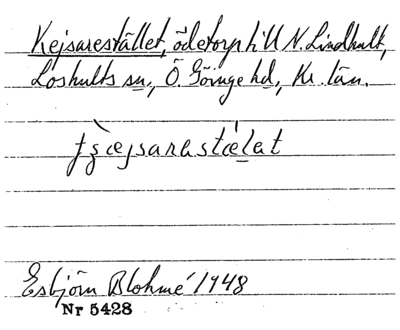 Kejsarestället, ödetorp till N. Lindhult,
Loshults sn, Ö. Göinge hd, Kr. län.
ƫʂ̀æjsarastǽlat
Esbjörn Blohmé 1948
Nr 5428